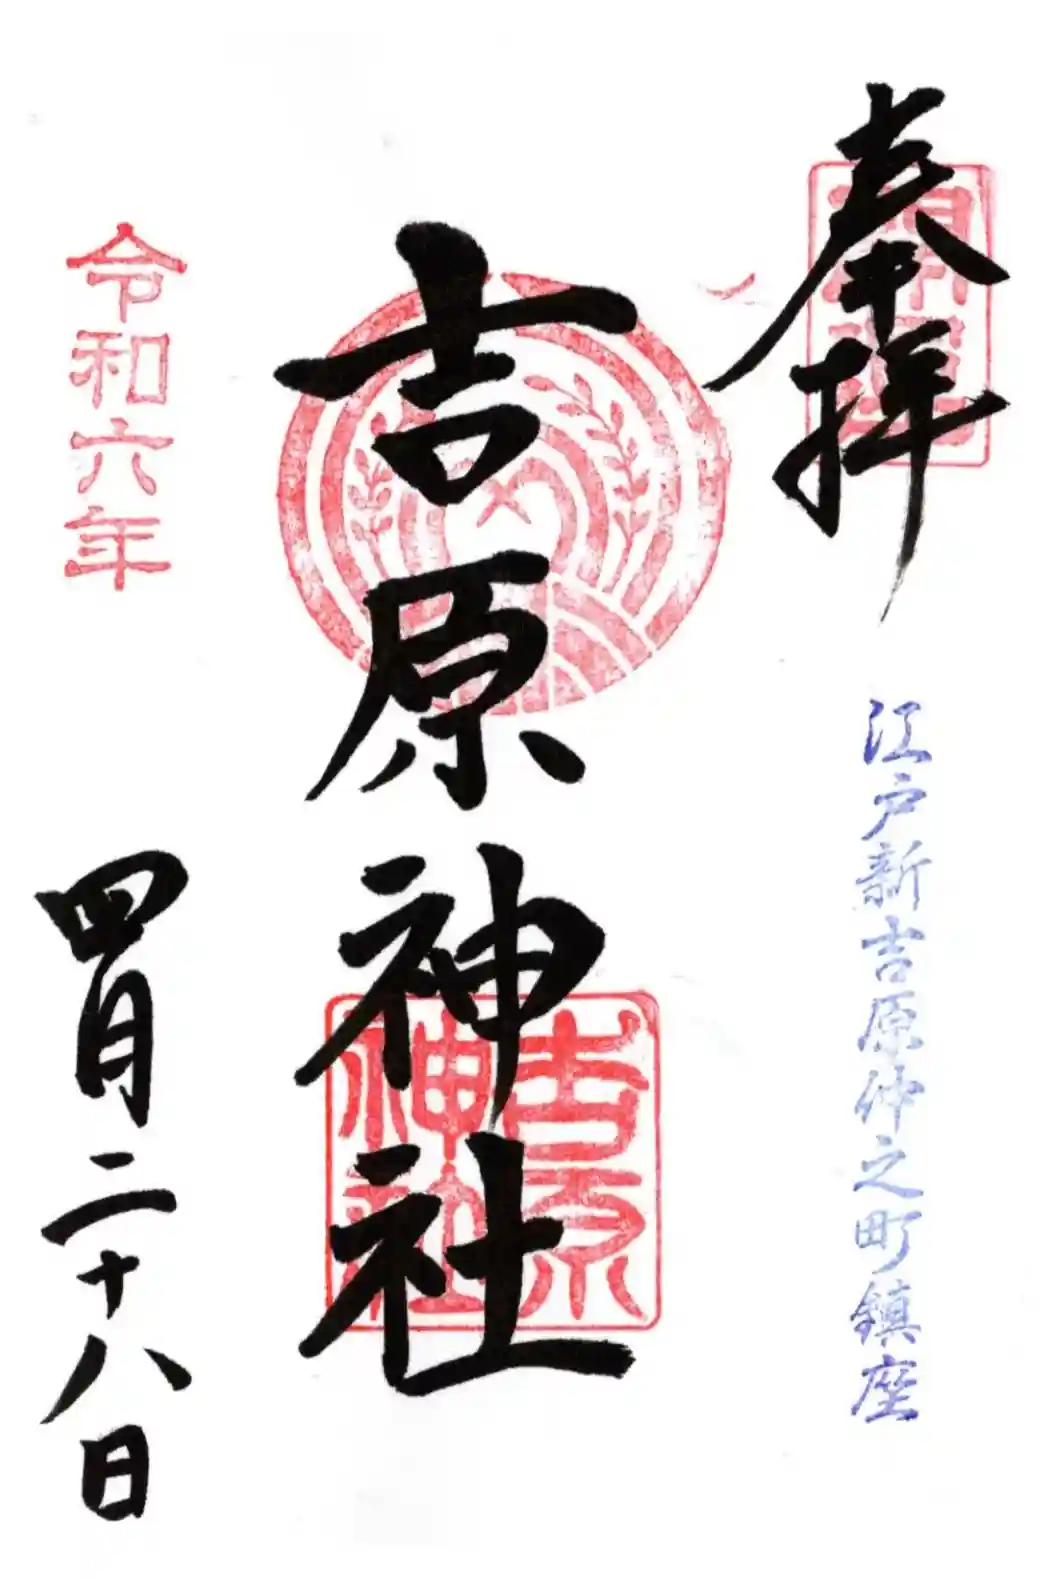 奉拝
開運
江戸新吉原仲之町鎮座
吉原神社
吉原神社
令和六年
四月二十八日